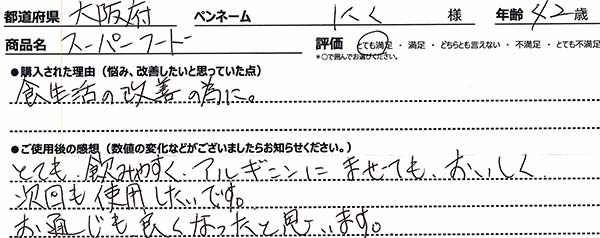 都道府県 大阪府 ペンネーム K.K 様 年齢 42歳
商品名 スーパーフード 評価 とても満足・満足・どちらとも言えない・不満足・とても不満足
*○で囲んでお選びください。
●購入された理由（悩み、改善したいと思っていた点）
食生活の改善の為に。
●ご使用後の感想（数値の変化などがございましたらお知らせください。）
とても飲みやすく、アルギニンにませても、おいしく
次回も使用したいです。
お通じも良くなったと思います。